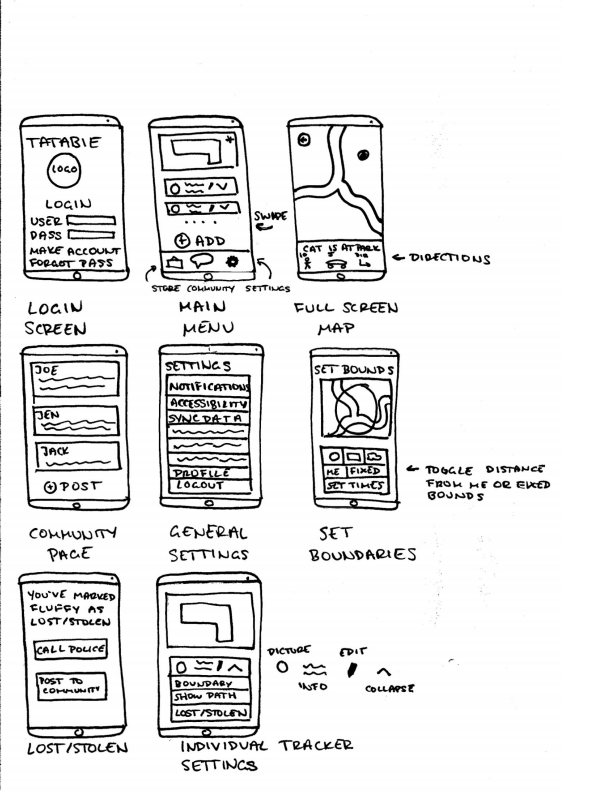 TATABIE
LOGO
LOGIN
USER
PASS
MAKE ACCOUNT
FORGOT PASS
LOGIN
SCREEN
+ ADD
SWIPE
STORE COMMUNITY SETTINGS
MAIN
MENU
CAT IS AT PARK
DIRECTIONS
FULL SCREEN
MAP
JOE
JEN
JACK
+ POST
COMMUNITY
PAGE
SETTINGS
NOTIFICATIONS
ACCESSIBILITY
SYNC DATA
PROFILE
LOGOUT
GENERAL
SETTINGS
SET BOUNDS
ME FIXED
SET TIMES
TOGGLE DISTANCE
FROM ME OR FIXED
BOUNDS
SET
BOUNDARIES
YOU'VE MARKED
FLUFFY AS
LOST/STOLEN
CALL POLICE
POST TO
COMMUNITY
LOST/STOLEN
BOUNDARY
SHOW PATH
LOST/STOLEN
PICTURE
EDIT
INFO
COLLAPSE
INDIVIDUAL TRACKER
SETTINGS